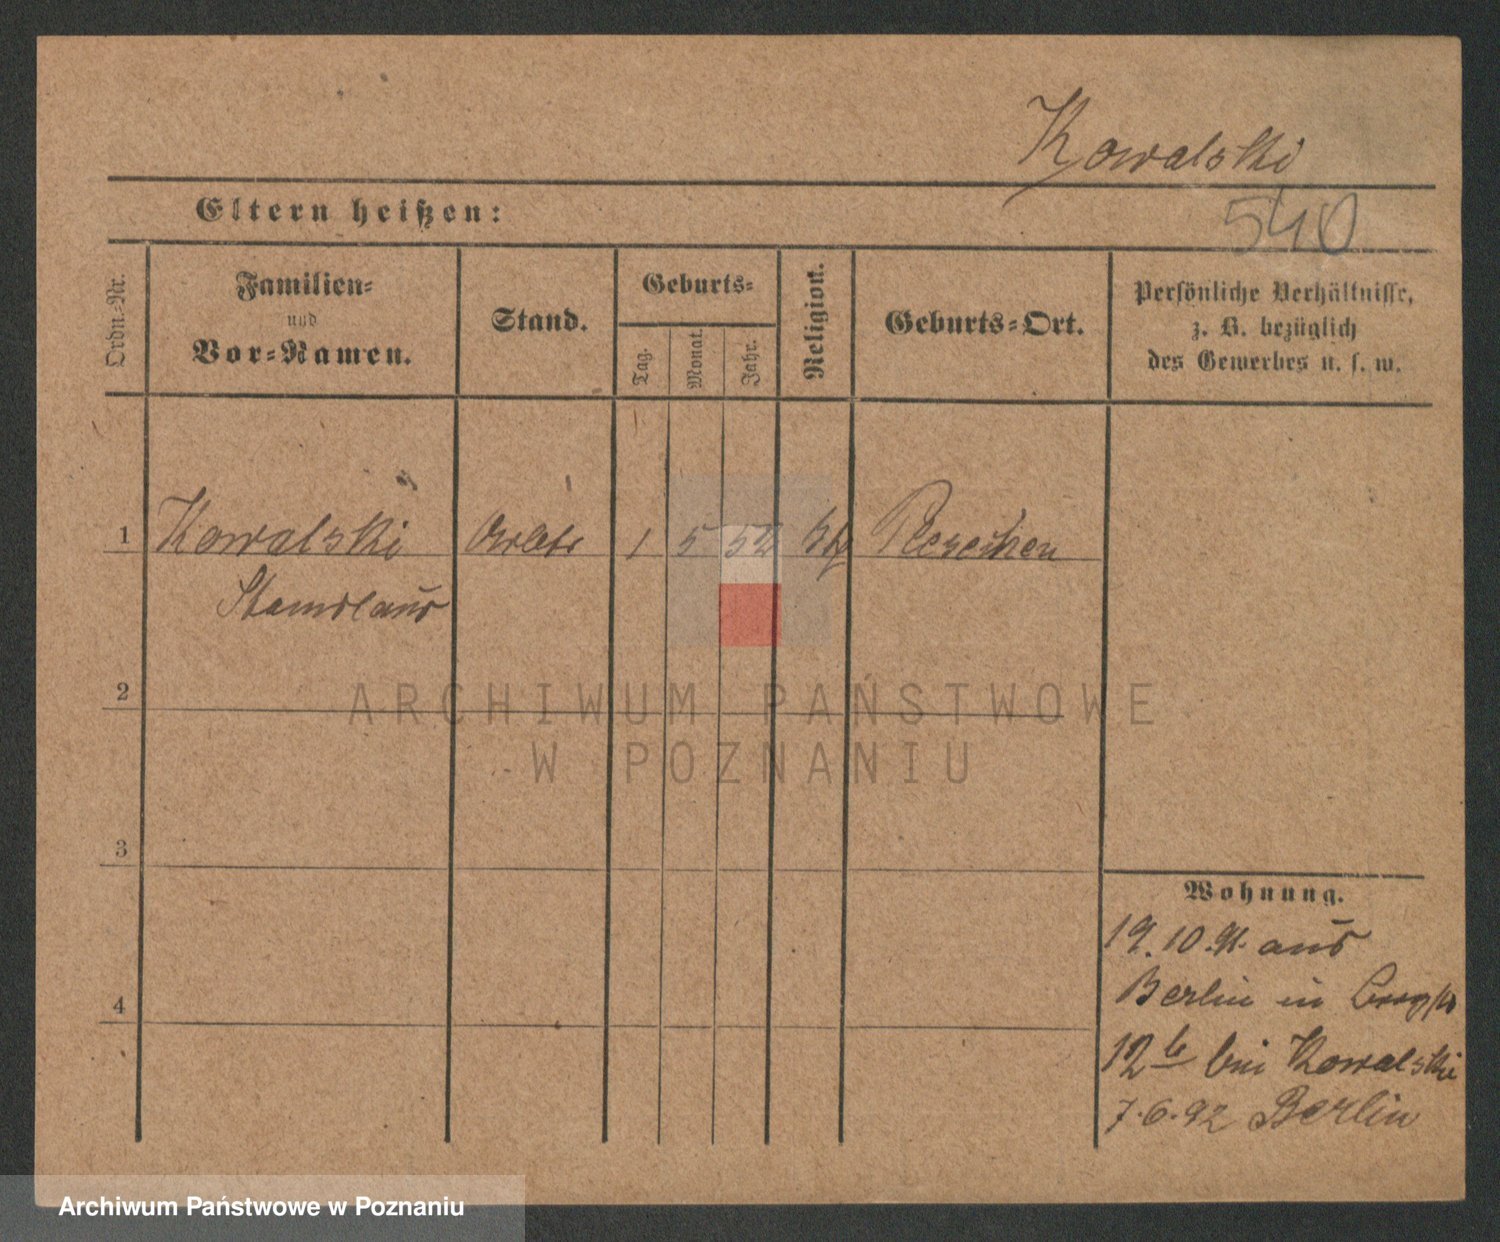 Kowalski
540
Eltern heißen:
Ordn.-Nr.
Familien-
und
Vor-Namen.
Stand.
Geburts-
Tag.
Monat.
Jahr.
Religion.
Geburts-Ort.
Persönliche Verhältnisse,
z. B. bezüglich
des Gewerbes u. s. w.
1 Kowalski 1 5 52 kth Pleschen
Stanislaus
2
3
4
Wohnung.
19.10.91. aus
Berlin in
12b bei Kowalski
7.6.92 Berlin
ARCHIWUM PAŃSTWOWE
W POZNANIU
Archiwum Państwowe w Poznaniu